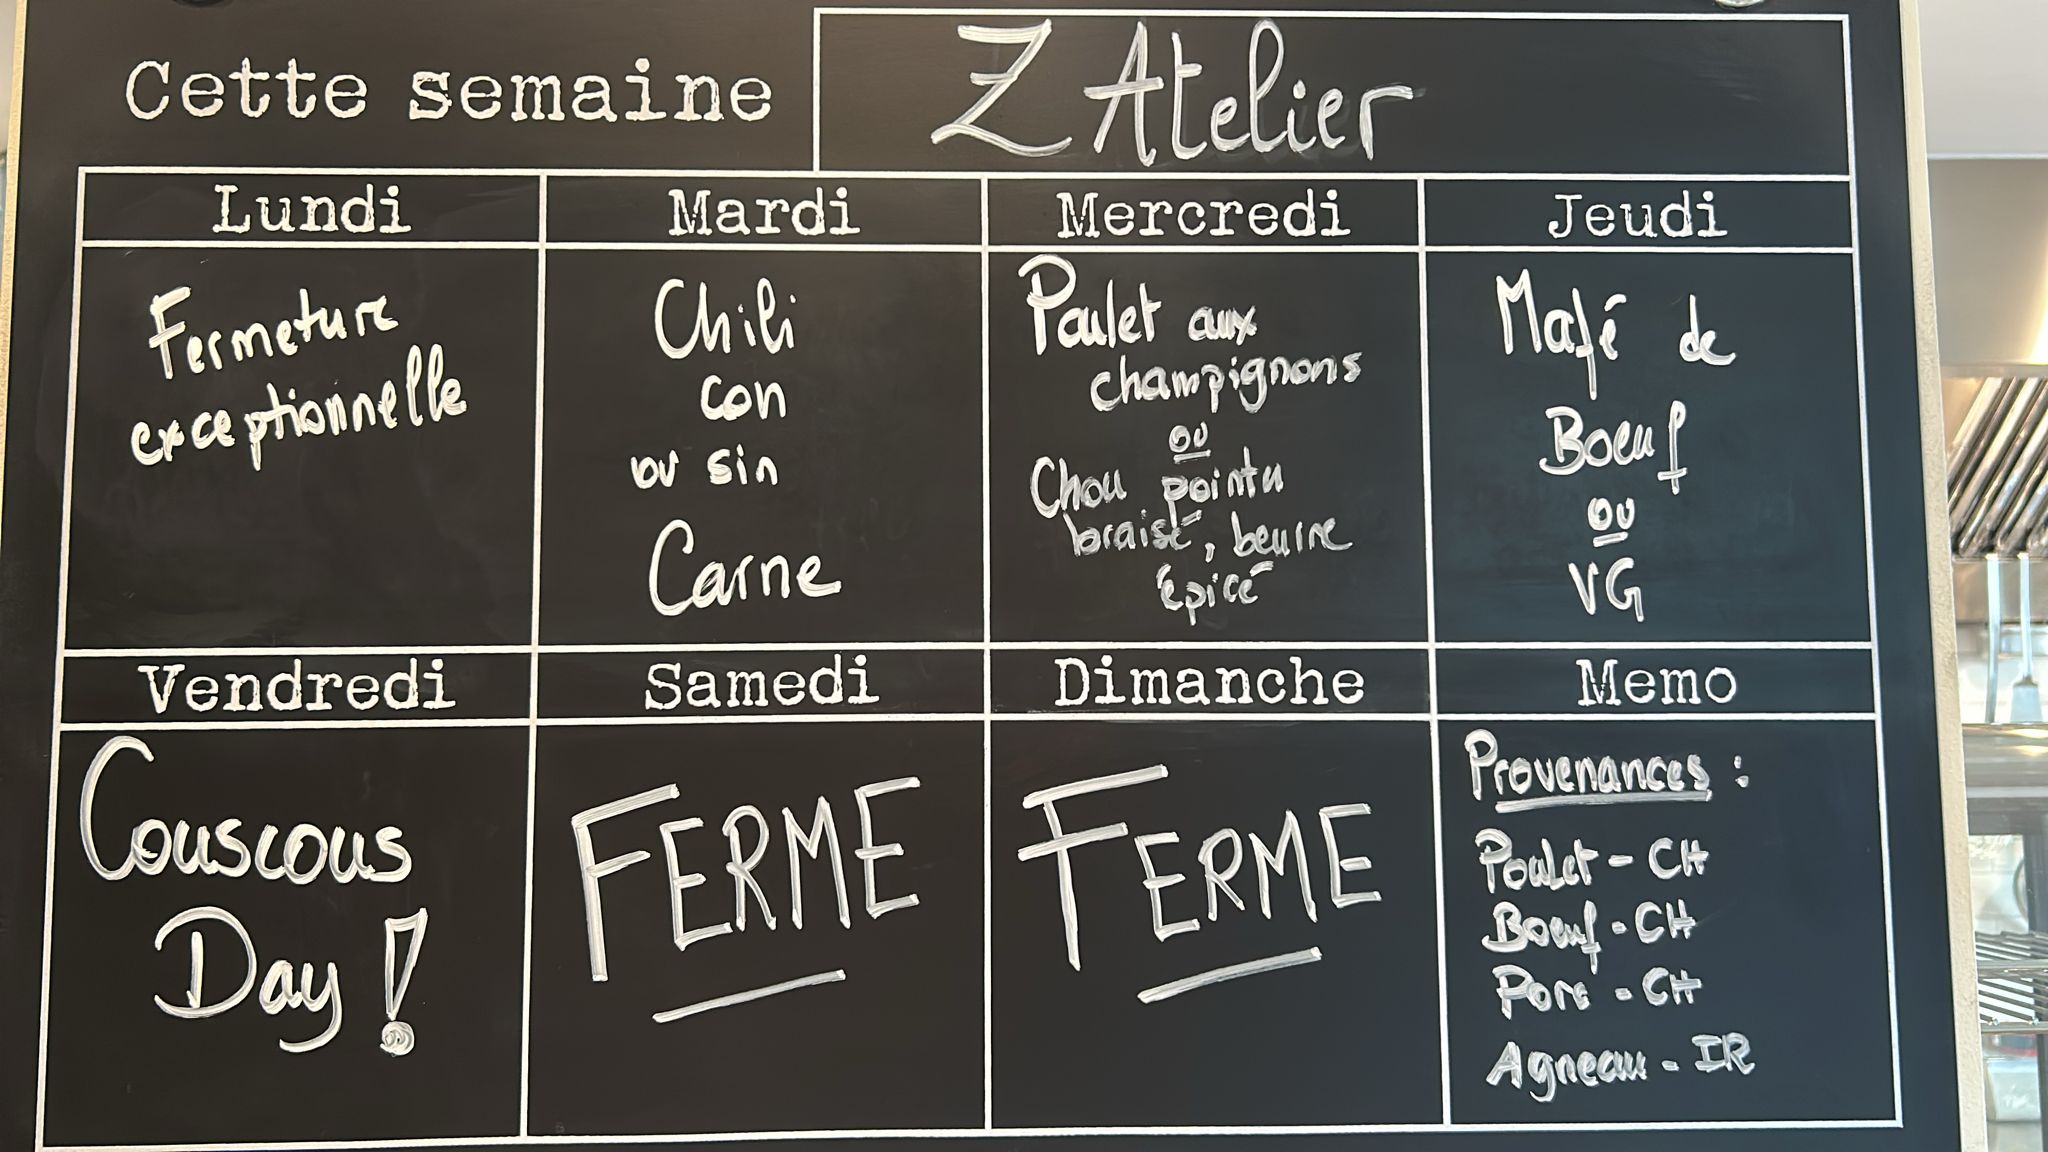 Cette semaine
Z Atelier
Lundi
Mardi
Mercredi
Jeudi
Fermeture
exceptionnelle
Chili
con
ou sin
Carne
Poulet aux
champignons
ou
Chou pointu
braisé, beurre
épicé
Mafé de
Boeuf
ou
VG
Vendredi
Samedi
Dimanche
Memo
Couscous
Day !
FERME
FERME
Provenances :
Poulet - CH
Boeuf - CH
Porc - CH
Agneau - IR